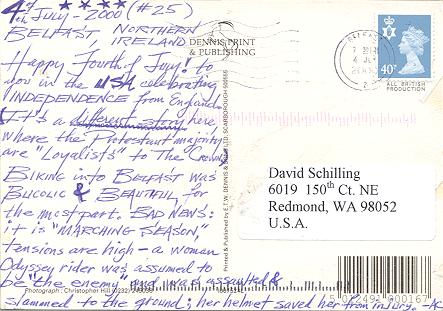 4th JULY - 2000 (#25)
BELFAST NORTHERN
IRELAND
Happy Fourth of July! to
you in the USA celebrating
INDEPENDENCE from England.
It's a different story here,
where the Protestant majority
are "Loyalists" to the Crown.
BIKING into BELFAST was
BUCOLIC & BEAUTIFUL for
the most part. BAD NEWS:
it is "MARCHING SEASON"
tensions are high - a woman
Odyssey rider was assumed to
be "the enemy" and was assaulted &
slammed to the ground; her helmet saved her from injury. -AC
DENNIS PRINT
& PUBLISHING
Printed & Published by E.T.W. DENNIS & SONS LTD, SCARBOROUGH
BELFAST
4 JLY
2000
2
40P
ALL BRITISH
PRODUCTION
David Schilling
6019 150th Ct. NE
Redmond, WA 98052
U.S.A.
Photograph: Christopher Hill (0232)
5 012491 000167